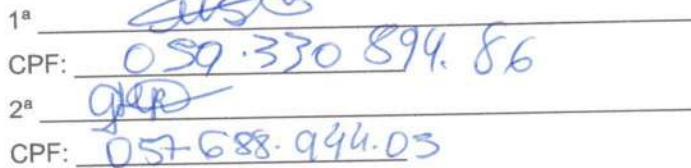 1ª
CPF: 059.330 894.86
2ª
CPF: 057688.944.03